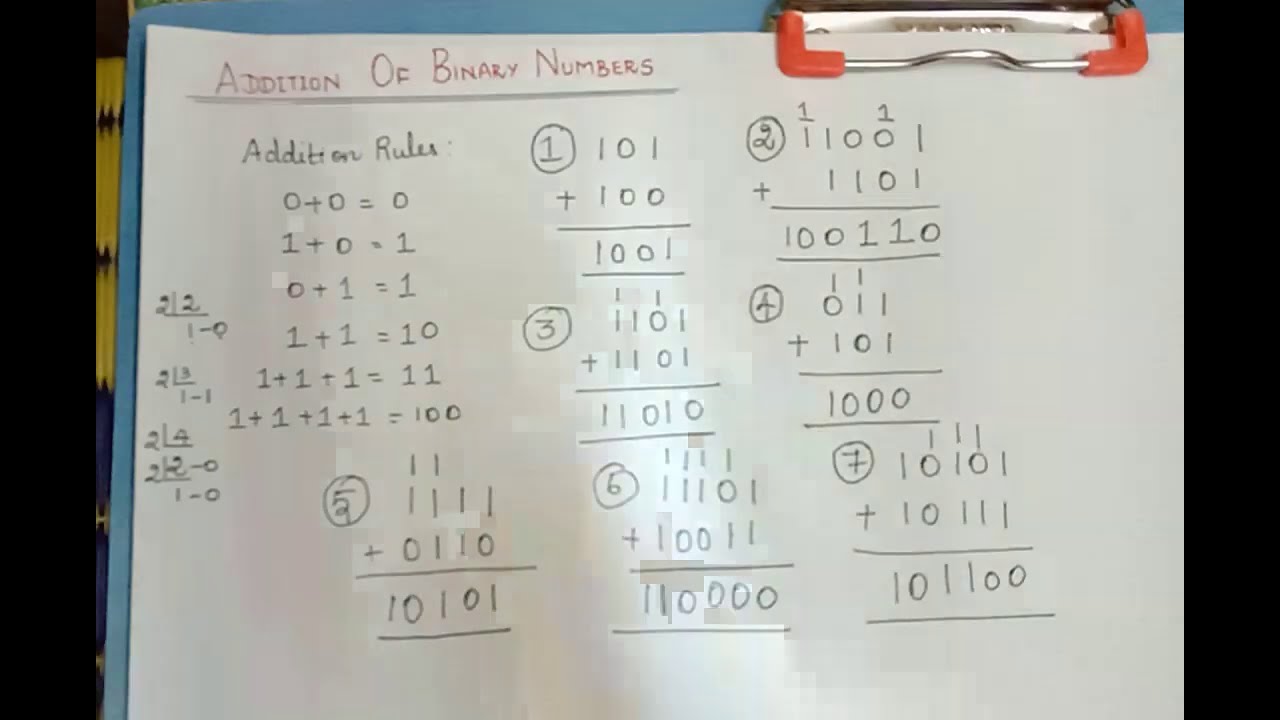 ADDITION OF BINARY NUMBERS
Addition Rules:
0+0 = 0
1+0 = 1
0+1 = 1
1+1 = 10
1+1+1 = 11
1+1+1+1 = 100
2|2
1-0
2|3
1-1
2|4
2|2-0
1-0
① 101
+ 100
1001
1 1
② 11001
+ 1101
100110
1 1
③ 1101
+ 1101
11010
1 1
④ 011
+ 101
1000
1 1
⑤ 1111
+ 0110
10101
1 1 1 1
⑥ 11101
+ 10011
110000
1 1 1
⑦ 10101
+ 10111
101100